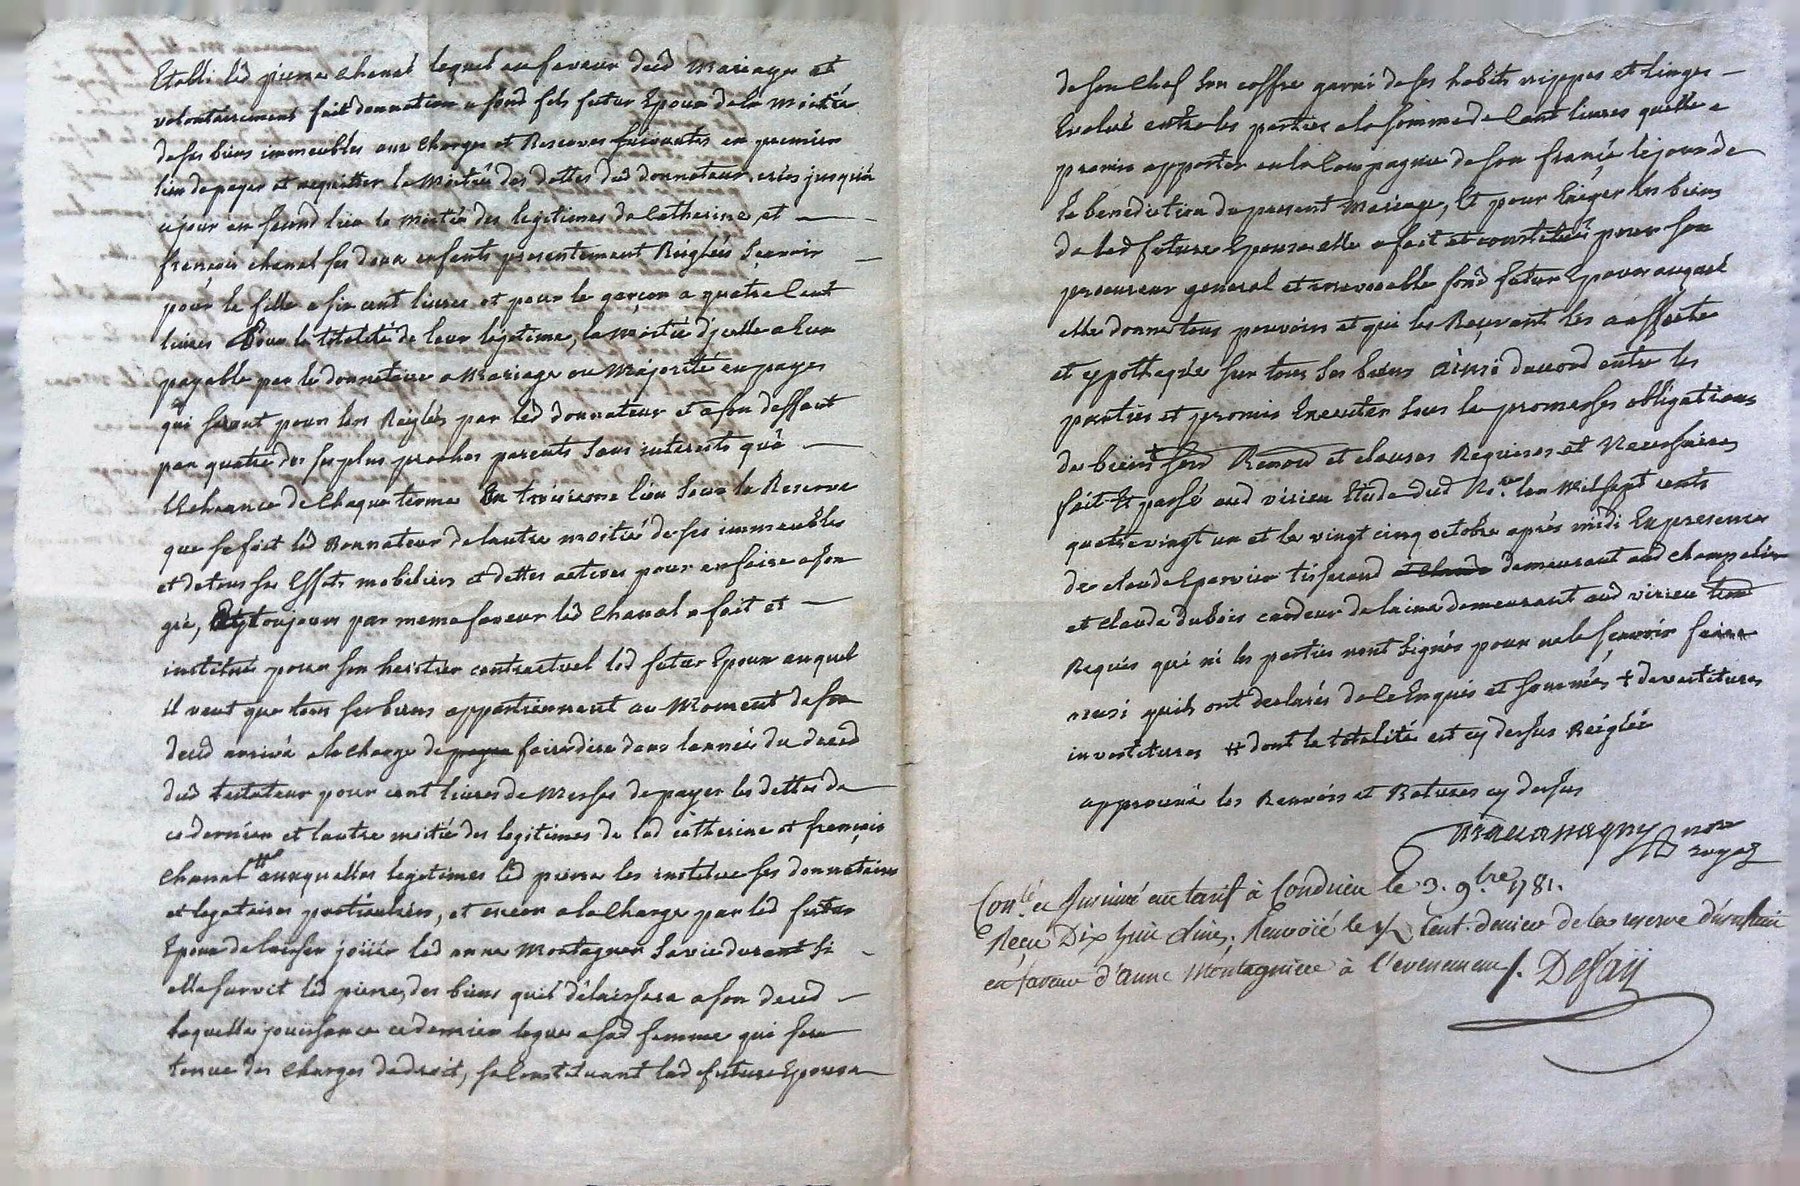 Etabli led pierre Chanal lequel en faveur dud mariage et
volontairement fait donnation a sond fils futur Epoux de la moitié
de ses biens immeubles aux charges et Reserves suivantes en premier
lieu de payer et acquitter la moitié des dettes dud donnateur crées jusqua
cejour en second lieu la moitié des legitimes de Catherine et —
françois chanal ses deux enfents presentement Reiglées Sçavoir —
pour la fille a six cent livres et pour le garçon a quatre Cent
livres Pour la totalité de leur legitime, la moitié dycelle a eux
payable par le donnateur a Mariage ou Majorité en payes
qui seront pour lors Reglés par led donnateur et a son deffaut
par quatre de ses plus proches parents Sans interests qua —
Lecheance de Chaque terme En troisieme lieu Sous la Reserve
que se fait led Donnateur de lautre moitié de ses immeubles
et de tous ses Effets mobiliers et dettes actives pour en faire a son
gré, Et toujours par meme faveur led Chanal a fait et —
institué pour son heritier contractuel led futur Epoux auquel
il veut que tous ses biens appartiennent au Moment de son
deced arrivé a la charge de payer faire dire dans lannée du deced
dud testateur pour cent livres de Messes de payer les dettes de
ce dernier et lautre moitié des legitimes de lad catherine et françois
Chanal # auxquelles legitimes led pierre les institue ses donnataires
et legataires particuliers, et encor a la Charge par led futur
Epoux de laisser joüir lad anne Montagner Sa vie durant Si —
elle survit led pierre, des biens quil délaissera a son deced —
laquelle jouissance ce dernier legue a sad femme qui sera
tenue des charges de droit, se Constituant lad future Epouse
de son Chef Son coffre garni de ses habits nippes et linges —
Evalué entre les parties a la somme de Cent livres quelle a
promis apporter en la Compagnie de son françé le jour de
la bénédiction du present Mariage, Et pour Exiger les biens
de lad future Epouse elle a fait et constitué pour son
procureur general et irrevocable sond futur Epoux auquel
elle donne tous pouvoirs et qui les Reçevant les a affecté
et ypothequé sur tous ses biens ainsi daccord entre les
parties et promis Executer Sous les promesses obligations
de biens + serm Renon et clauses Requises et Necessaires
fait Et passé aud virieu Etude dud Nre lan mil sept cents
quatre vingt un et le vingt cinq octobre après midi En presence
de claude Eparvier tisserand et claude demeurant aud champalier
et claude dubois cardeur de laine demeurant aud virieu
Requis qui ni les parties nont Signés pour ne le sçavoir faire
ainsi quils ont declarés de ce Enquis et sommés + devestitures
investitures # dont la totalité est cy dessus Reiglée
approuvé les Renvois et Ratures cy dessus
not
royal
Conlé et Insinué au tarif à Condrieu le 3. 9bre 1781.
Reçu Dix huit livres. Renvoié le Cent. denier de la reserve d'usufruit
en faveur d'anne Montagnier à l'evenement. Desaij